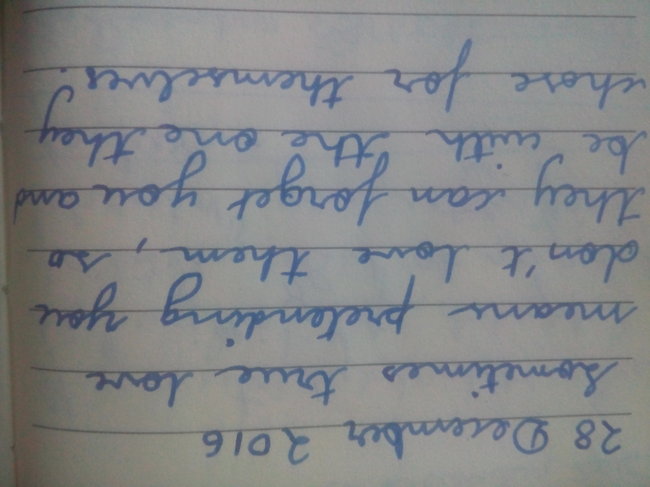 28 December 2016
Sometimes true love
means pretending you
don't love them, so
they can forget you and
be with the one they
chose for themselves.